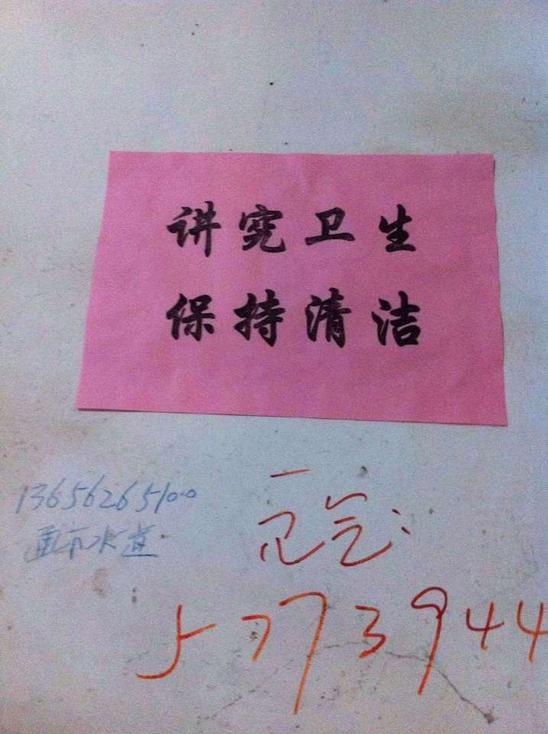 讲究卫生
保持清洁
13656265100
水道
气:
5773944